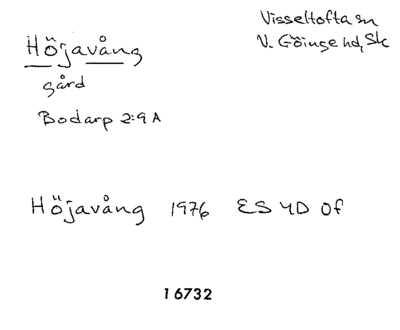 Höjavång
gård
Bodarp 2:9 A
Visseltofta sn
V. Göinge hd, Sk
Höjavång 1976 ES 4D 0f
16732